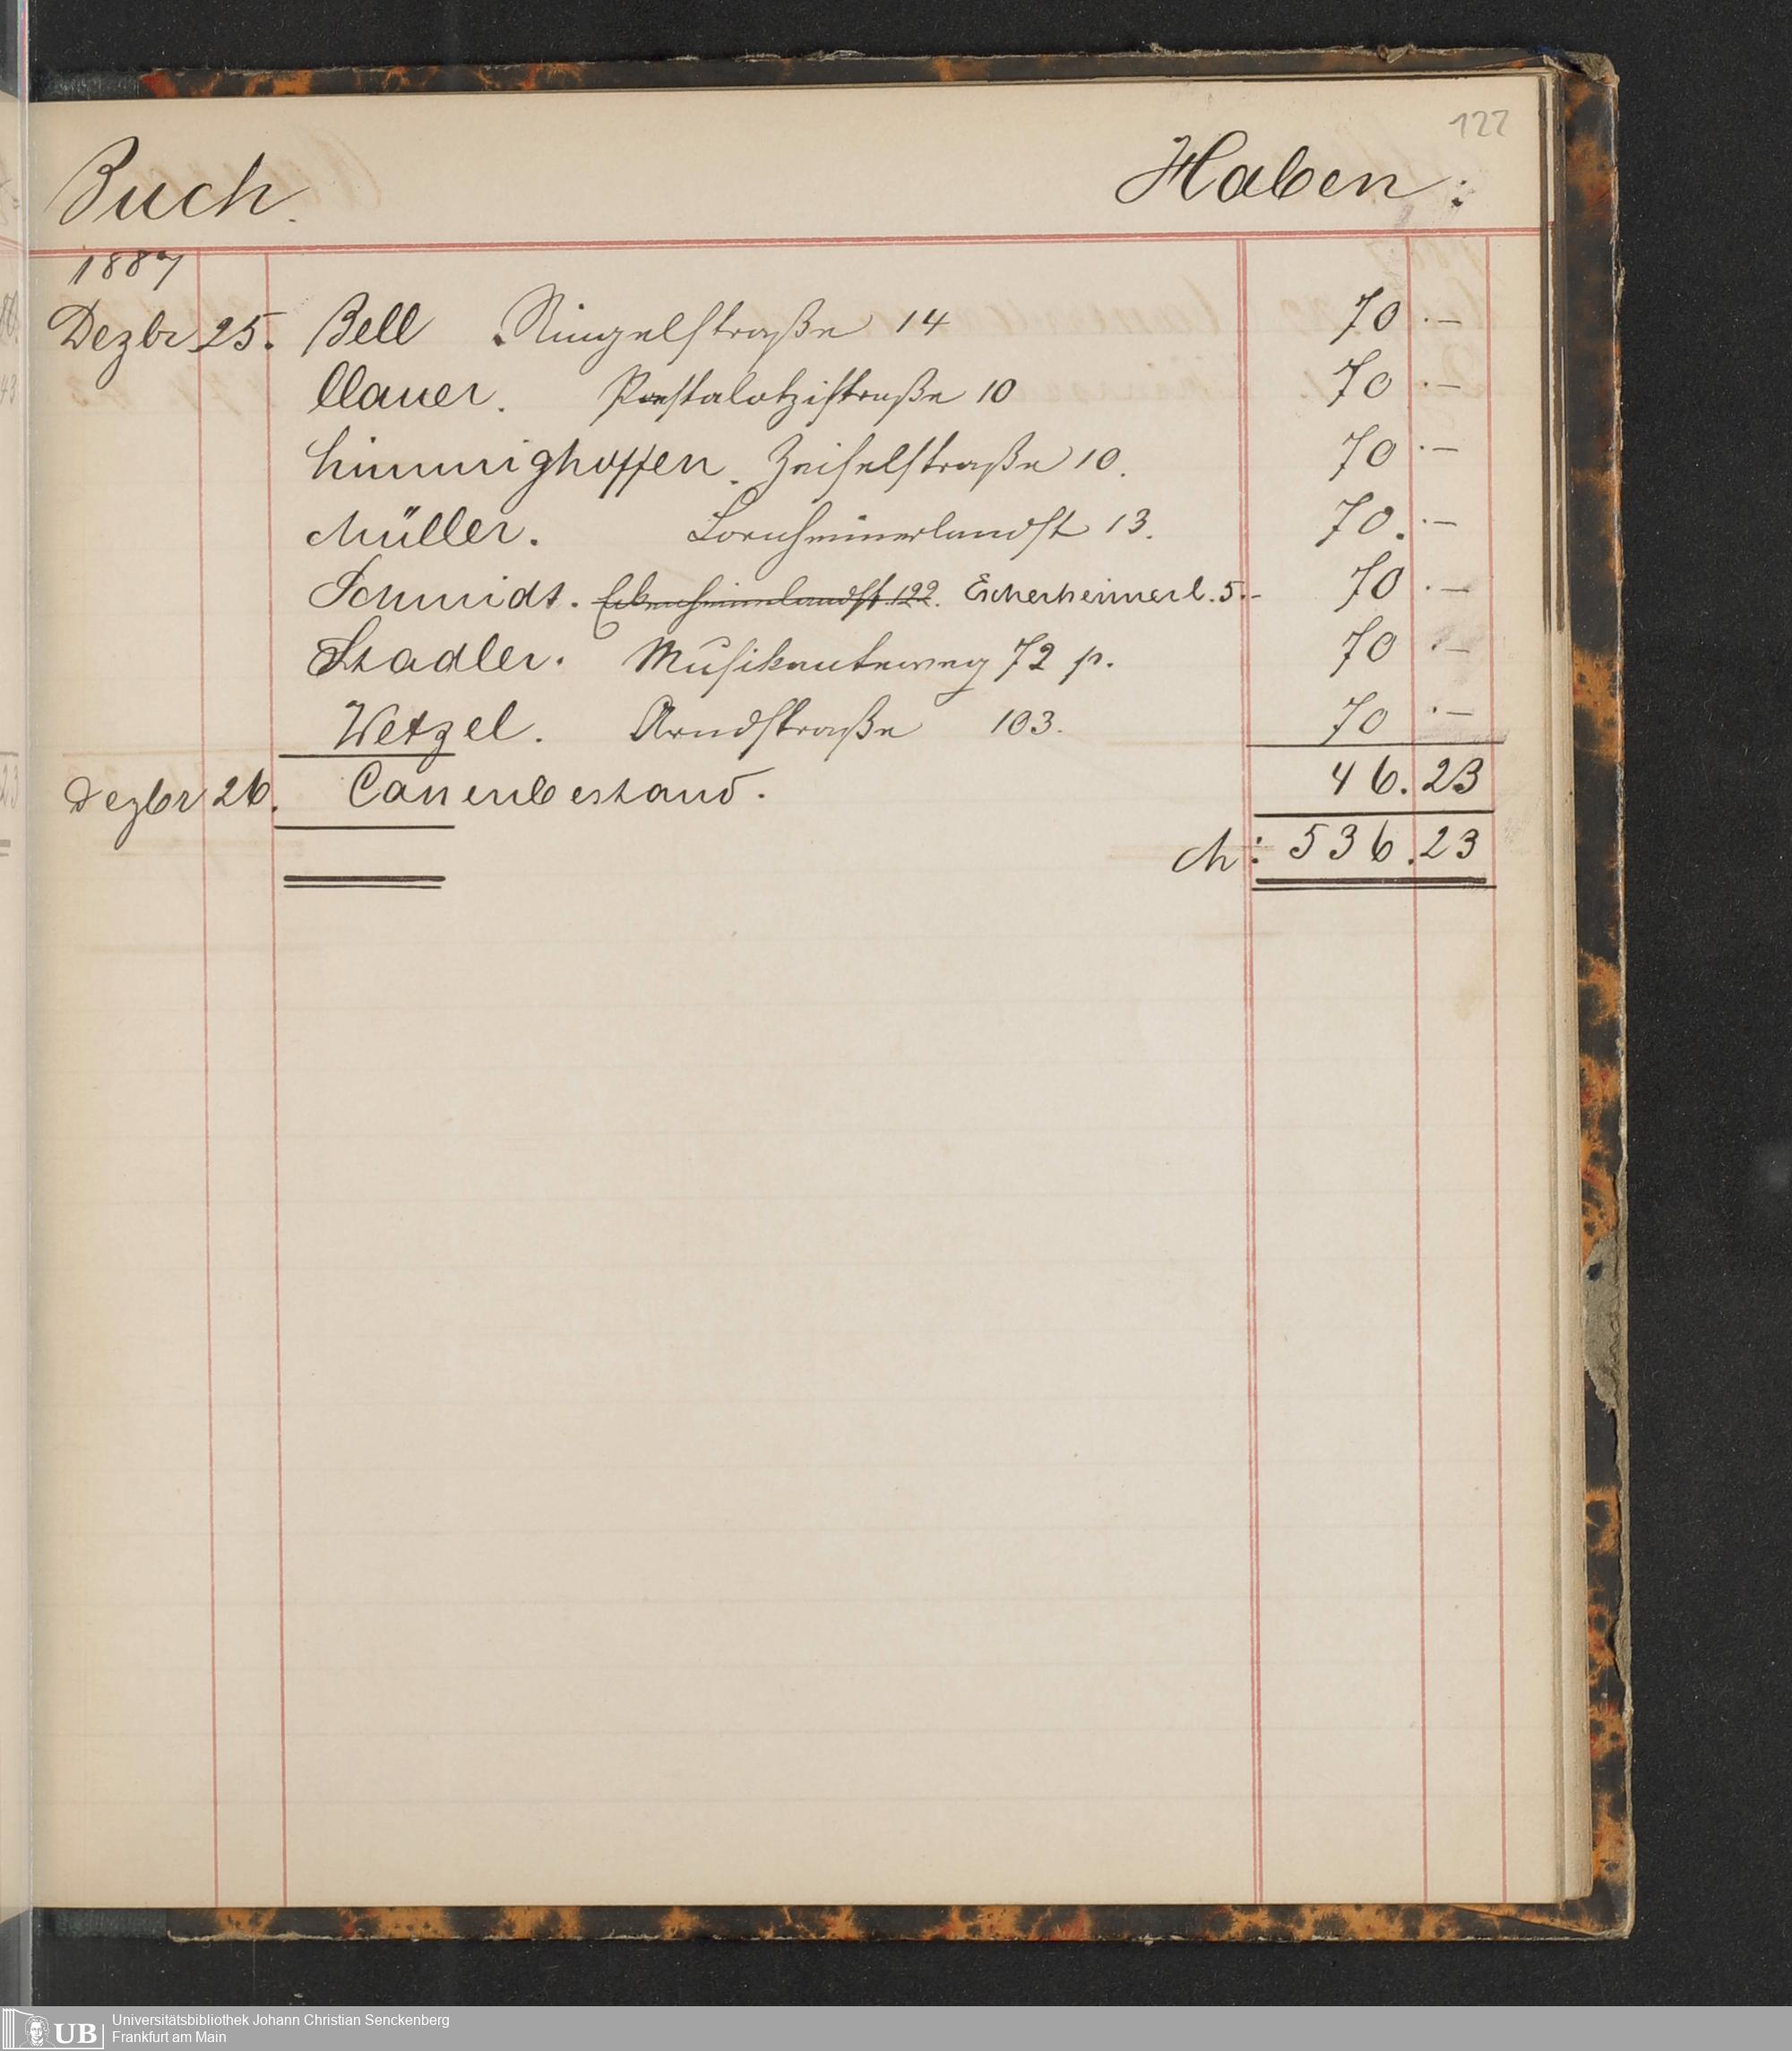 122
Buch. Haben:
1887
Dezbr 25. Bell Ringelstraße 14 70 . —
Clauer. Pestalotzistraße 10 70 . —
Himmighoffen. Zeiselstraße 10. 70 . —
Müller. Bornheimerlandst 13. 70. . —
Schmidt. Eckenheimerlandst. 122. Escherheimerl. 5. - 70 . —
Stadler. Musikanteweg 72 p. 70 . —
Wetzel. Arndstraße 103. 70 . —
Dezbr 26. Cassenbestand. 46. 23
M: 536.23
UB Universitätsbibliothek Johann Christian Senckenberg
Frankfurt am Main